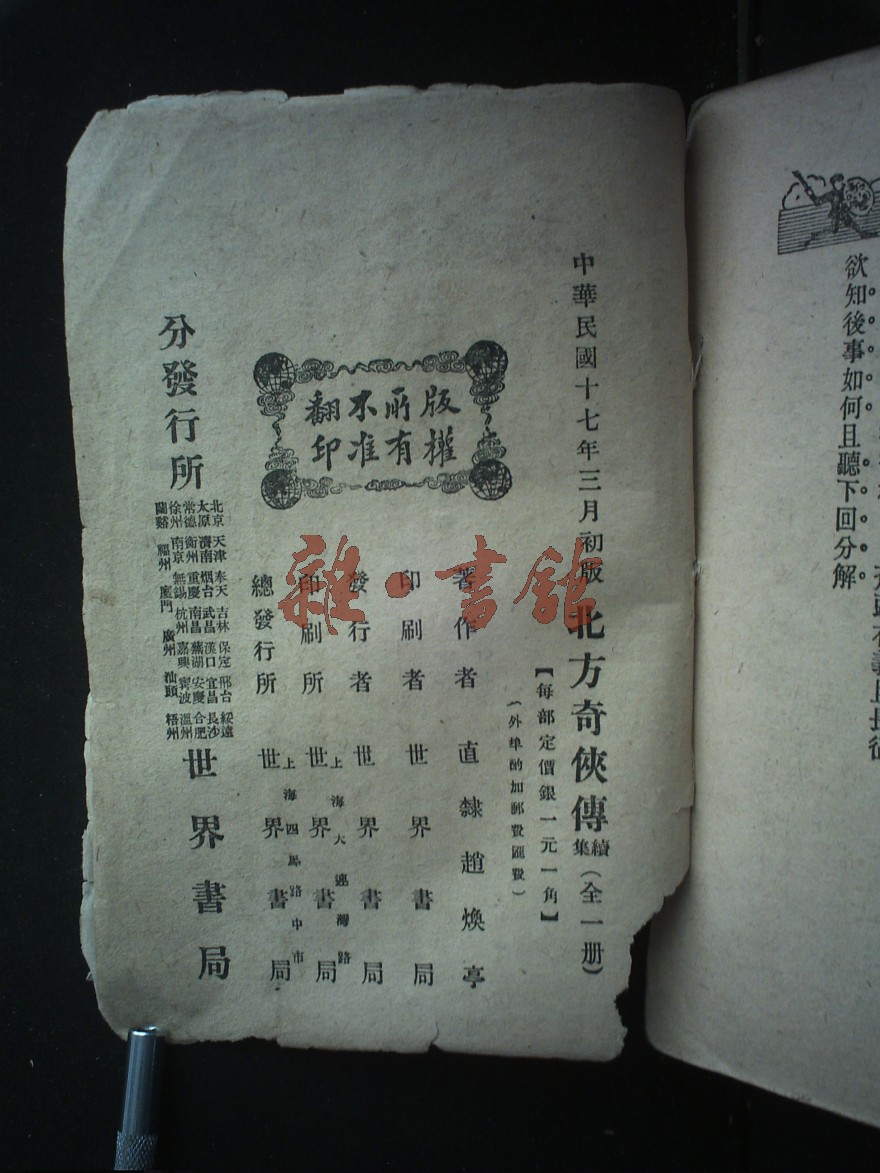 欲知後事如何且聽下回分解
中華民國十七年三月初版
北方奇俠傳續集（全一册）
【每部定價銀一元一角】
（外埠酌加郵費匯費）
版權所有不准翻印
著作者 直隸趙煥亭
印刷者 世界書局
發行者 世界書局
上海大連灣路
印刷所 世界書局
上海四馬路中市
總發行所 世界書局
分發行所
北京 天津 奉天 吉林 保定 邢台 綏遠
太原 濟南 烟台 武昌 漢口 宜昌 長沙
常德 衡州 重慶 南昌 蕪湖 安慶 合肥
徐州 南京 無錫 杭州 嘉興 寗波 溫州
蘭谿 福州 廈門 廣州 汕頭 梧州
世界書局
雜·書館